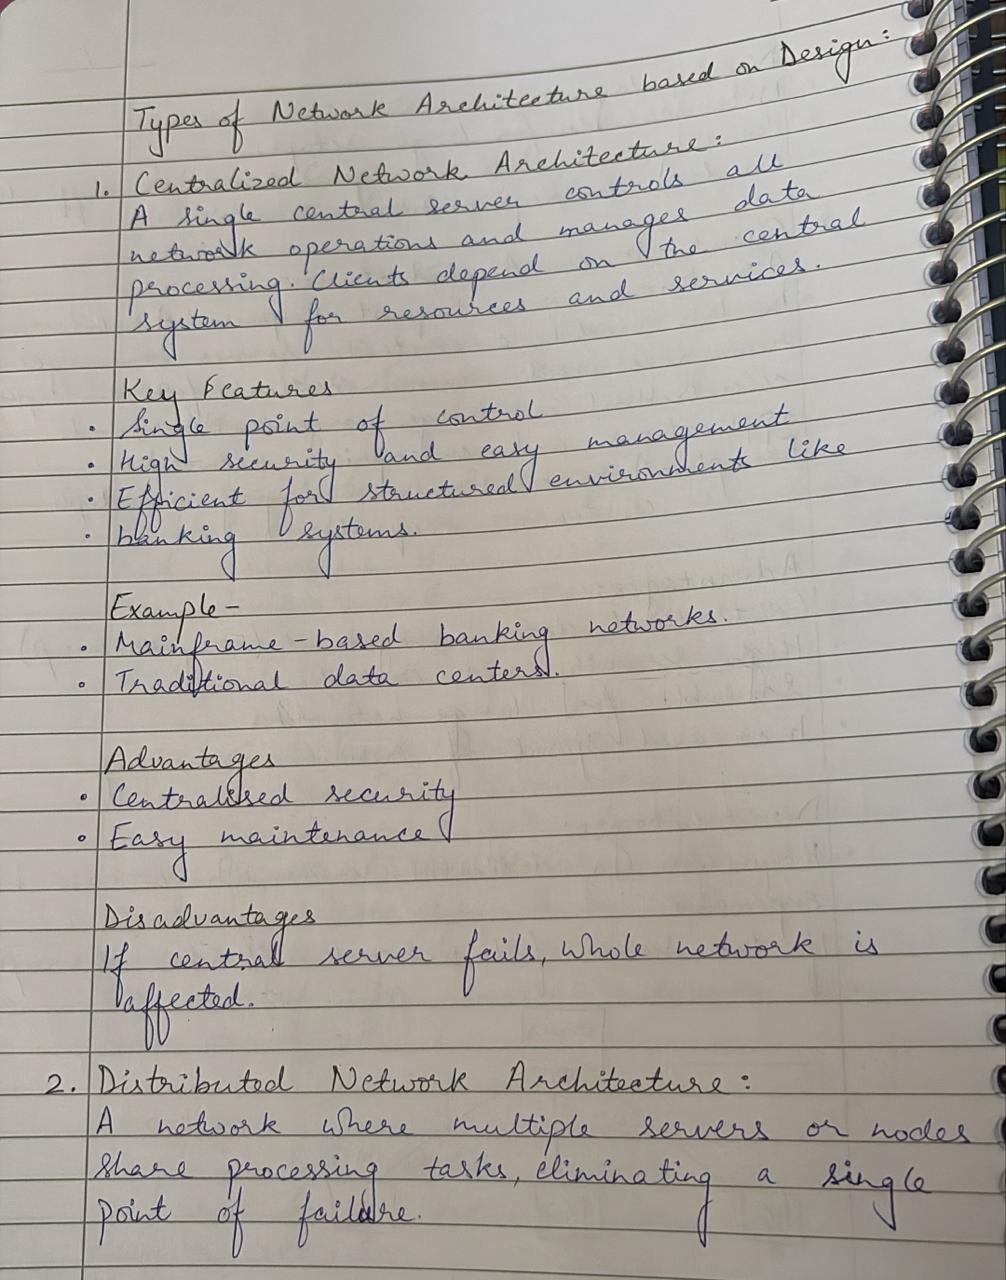 Types of Network Architecture based on Design:
1. Centralized Network Architecture:
A single central server controls all
network operations and manages data
processing. Clients depend on the central
system for resources and services.
Key Features
• Single point of control
• High security and easy management
• Efficient for structured environments like
• banking systems.
Example-
• Mainframe-based banking networks.
• Traditional data centers.
Advantages
• Centralised security
• Easy maintenance
Disadvantages
If central server fails, whole network is
affected.
2. Distributed Network Architecture:
A network where multiple servers or nodes
share processing tasks, eliminating a single
point of failure.